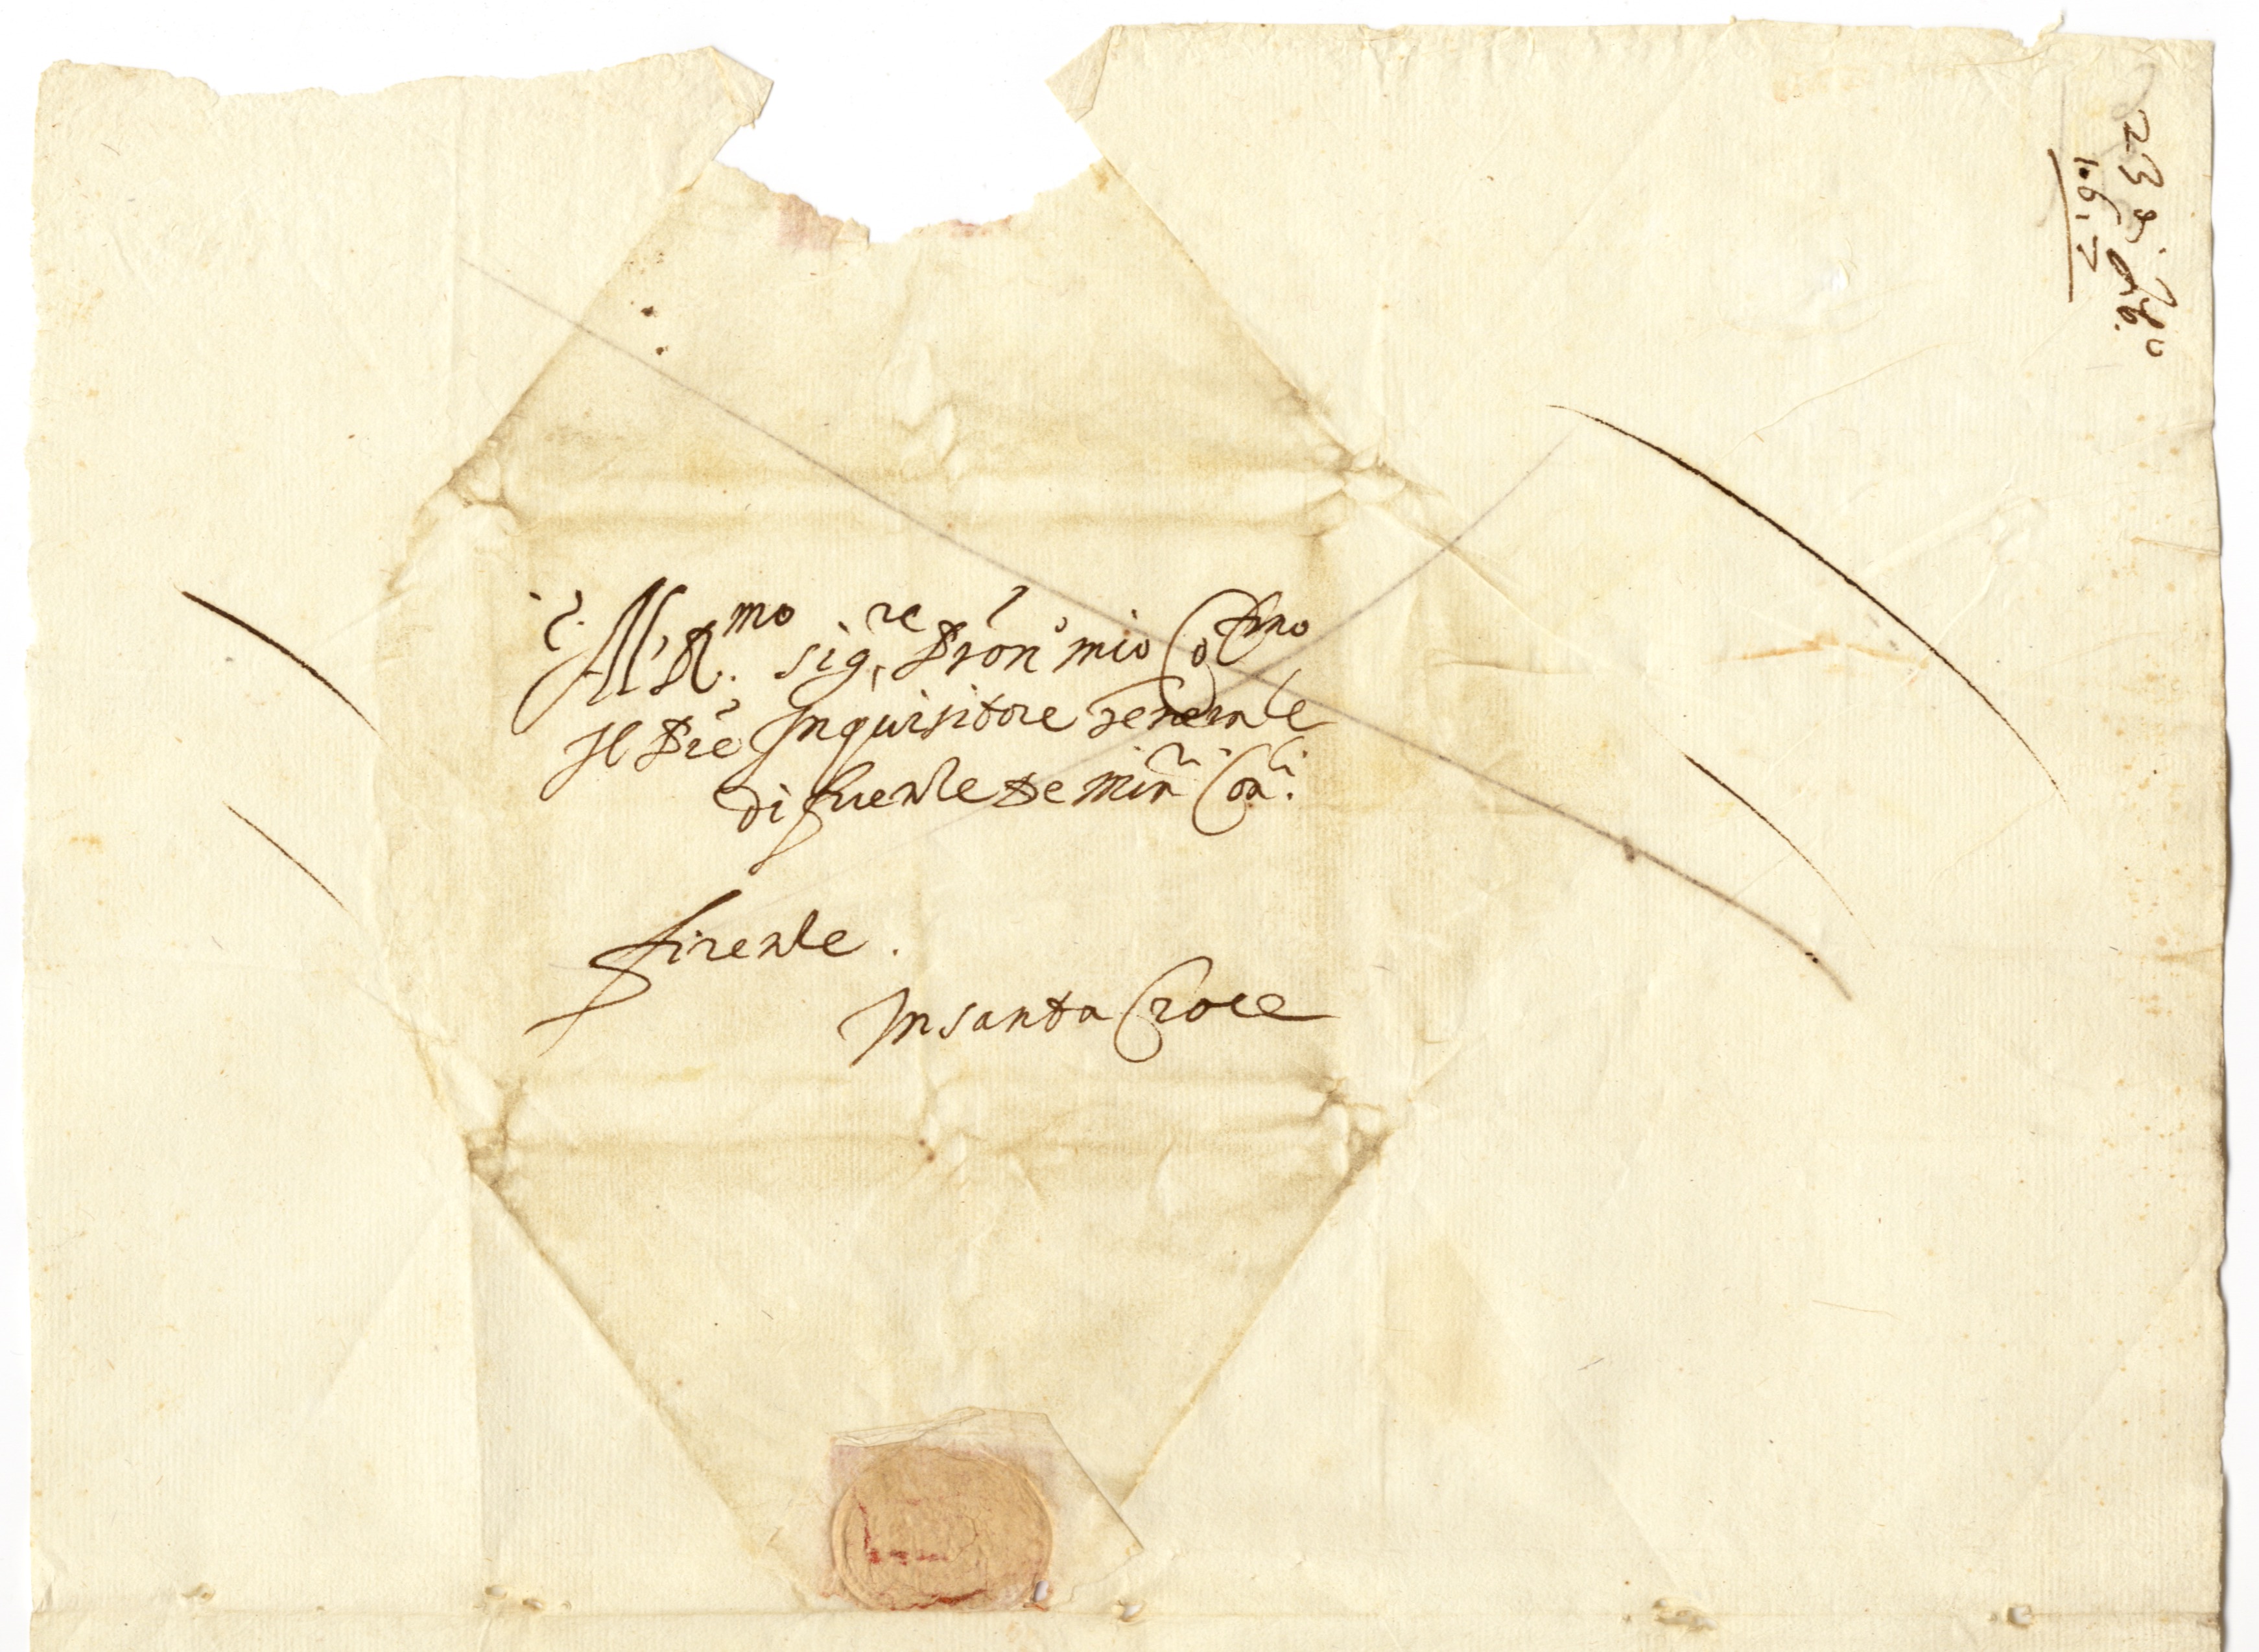 Al R.mo sig.re Pron mio Co.mo
Il Pre Inquisitore generale
di firenze De Min.ri Con.li
firenze.
In santa Croce
23 di
1617